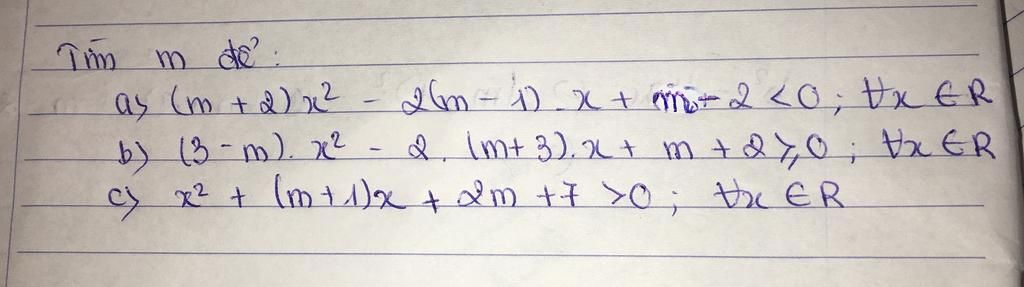 Tìm m để:
a) (m + 2)x² - 2(m - 1).x + m - 2 < 0; ∀x ∈ R
b) (3 - m). x² - 2. (m + 3).x + m + 2 ≥ 0; ∀x ∈ R
c) x² + (m + 1)x + 2m + 7 > 0; ∀x ∈ R